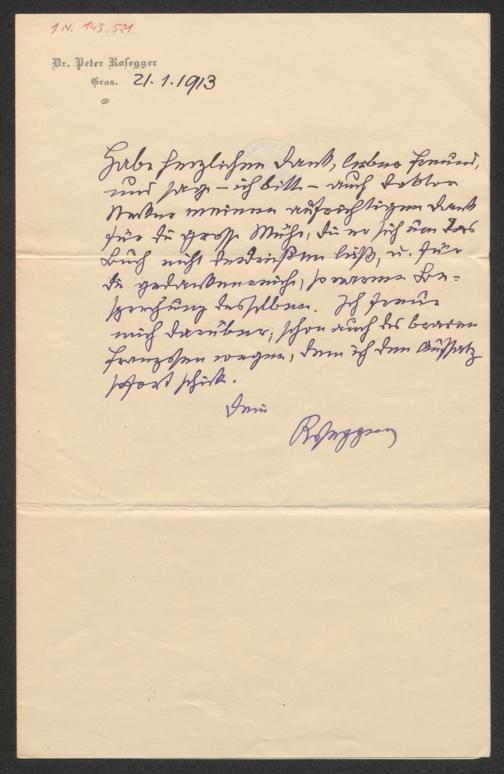 I N. 143.521
Dr. Peter Rosegger
Graz. 21.1.1913
Habe herzlichen Dank, lieber Freund,
und sage – ich bitte – auch Doktor
Necker meinen aufrichtigen Dank
für die grosse Mühe, die er sich um das
Buch nicht verdrießen ließ, u. für
die gedankenreiche, so warme Be-
sprechung desselben. Ich freue
mich darüber, schon auch des braven
Franzosen wegen, dem ich den Aufsatz
sofort schicke.
Dein
Rosegger